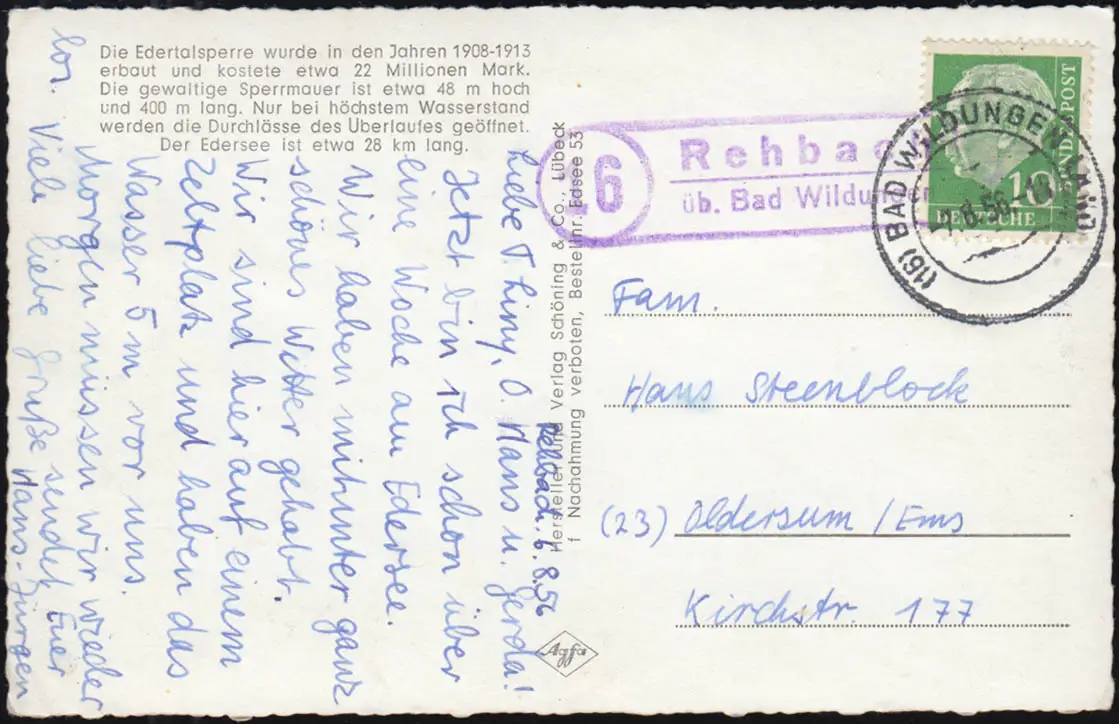 Die Edertalsperre wurde in den Jahren 1908-1913
erbaut und kostete etwa 22 Millionen Mark.
Die gewaltige Sperrmauer ist etwa 48 m hoch
und 400 m lang. Nur bei höchstem Wasserstand
werden die Durchlässe des Überlaufes geöffnet.
Der Edersee ist etwa 28 km lang.
Rehbach, 6.8.56
Liebe T. Liny, O. Hans u. Gerda!
Jetzt bin ich schon über
eine Woche am Edersee.
Wir haben mitunter ganz
schönes Witter gehabt.
Wir sind hier auf einem
Zeltplatz und haben das
Wasser 5 m vor uns.
Morgen müssen wir wieder
los. Viele liebe Grüße sendet Euer
Hans-Jürgen
Hersteller und Verlag Schöning & Co. Lübeck
f Nachahmung verboten, Bestellnr. Edsee 53
Agfa
16
Rehba
üb. Bad Wildun
(16) BAD WILDUNGEN LAND
7.8.56-18
DEUTSCHE
BUNDESPOST
10
Fam.
Hans Steenblock
(23) Oldersum /Ems
Kirchstr. 177